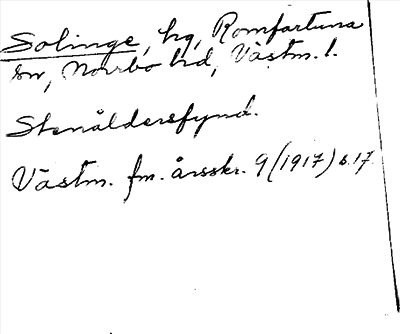 Solinge, hg, Romfartuna
sn, Norrbo hd, Västm. l.
Stenåldersfynd.
Västm. fm. årsskr. 9 (1917) s. 17